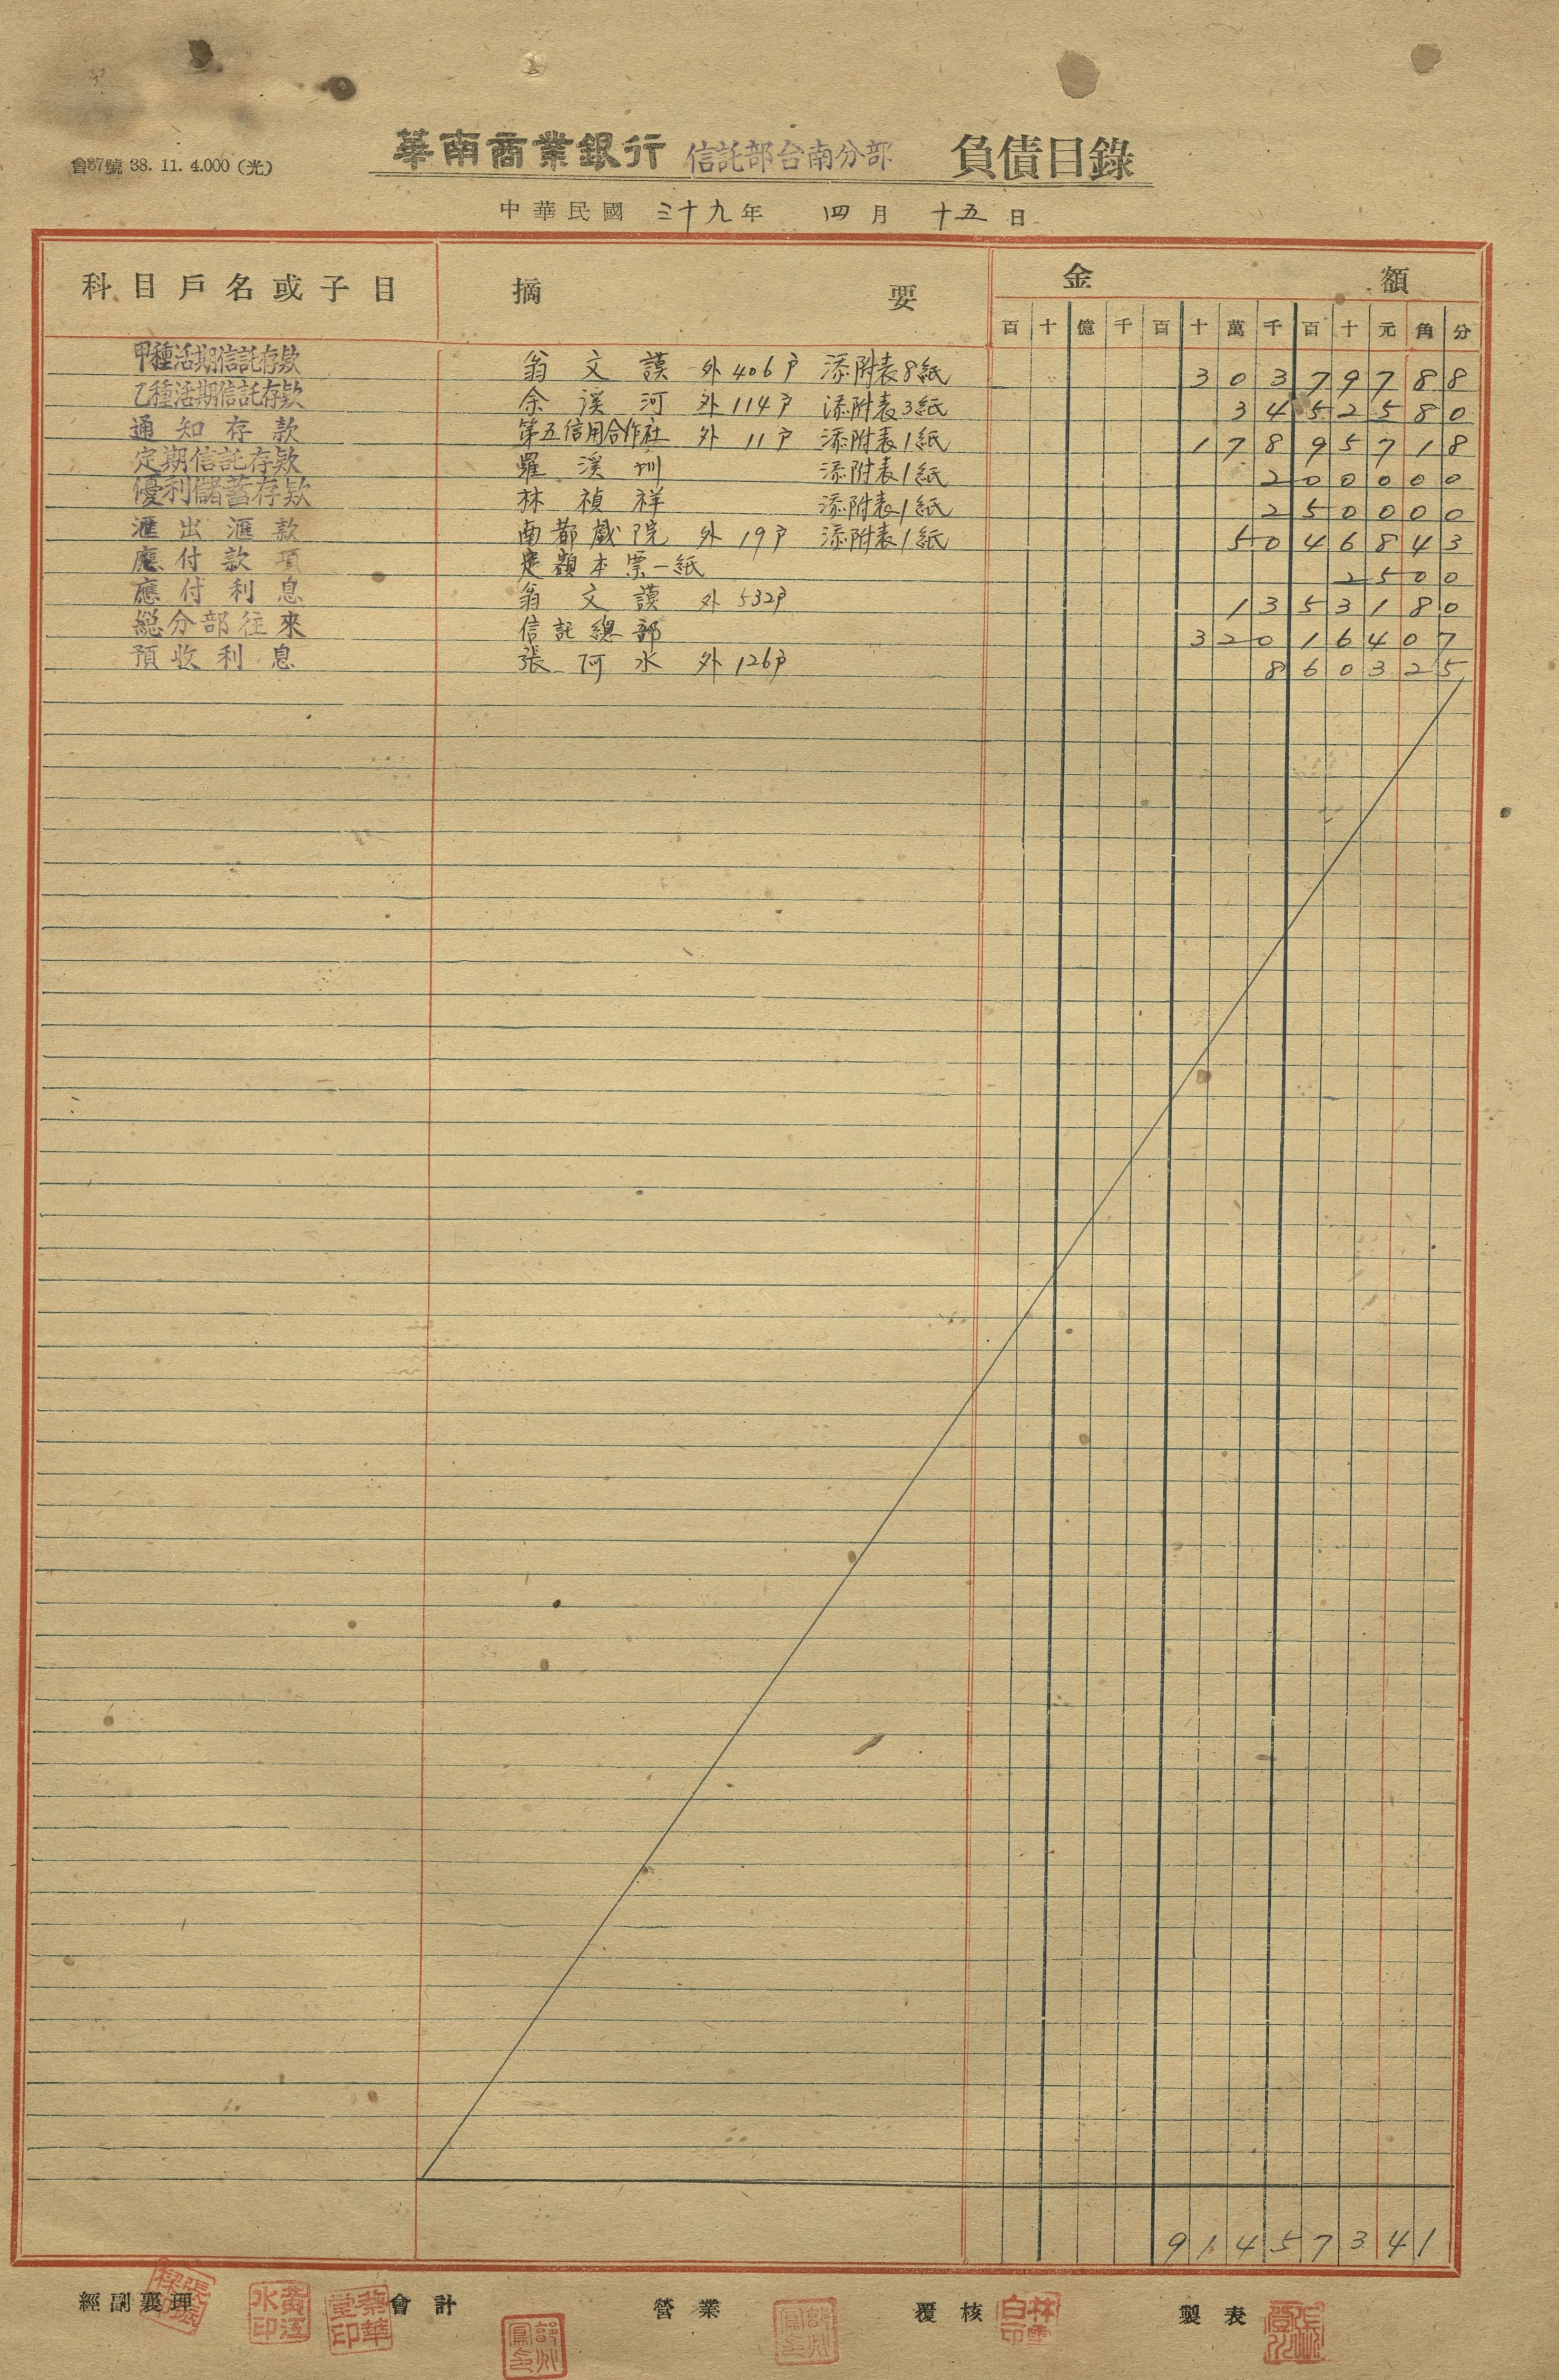 會37號 38. 11. 4.000 (光)
華南商業銀行 信託部台南分部 負債目錄
中華民國 三十九年 四月 十五日
科目戶名或子目 摘要 金額
百 十 億 千 百 十 萬 千 百 十 元 角 分
甲種活期信託存款 翁文謨 外406戶 添附表8紙 3 0 3 7 9 7 8 8
乙種活期信託存款 余溪河 外114戶 添附表3紙 3 4 5 2 5 8 0
通知存款 第五信用合作社 外11戶 添附表1紙 1 7 8 9 5 7 1 8
定期信託存款 羅溪圳 添附表1紙 2 0 0 0 0 0
優利儲蓄存款 林禎祥 添附表1紙 2 5 0 0 0 0
滙出滙款 南都戲院 外19戶 添附表1紙 5 0 4 6 8 4 3
應付款項 定額本票一紙 2 5 0 0
應付利息 翁文謨 外532戶 1 3 5 3 1 8 0
総分部往來 信託總部 3 2 0 1 6 4 0 7
預收利息 張阿水 外126戶 8 6 0 3 2 5
9 1 4 5 7 3 4 1
經副襄理 會計 營業 覆核 製表
黃江水印
蔡華堂印